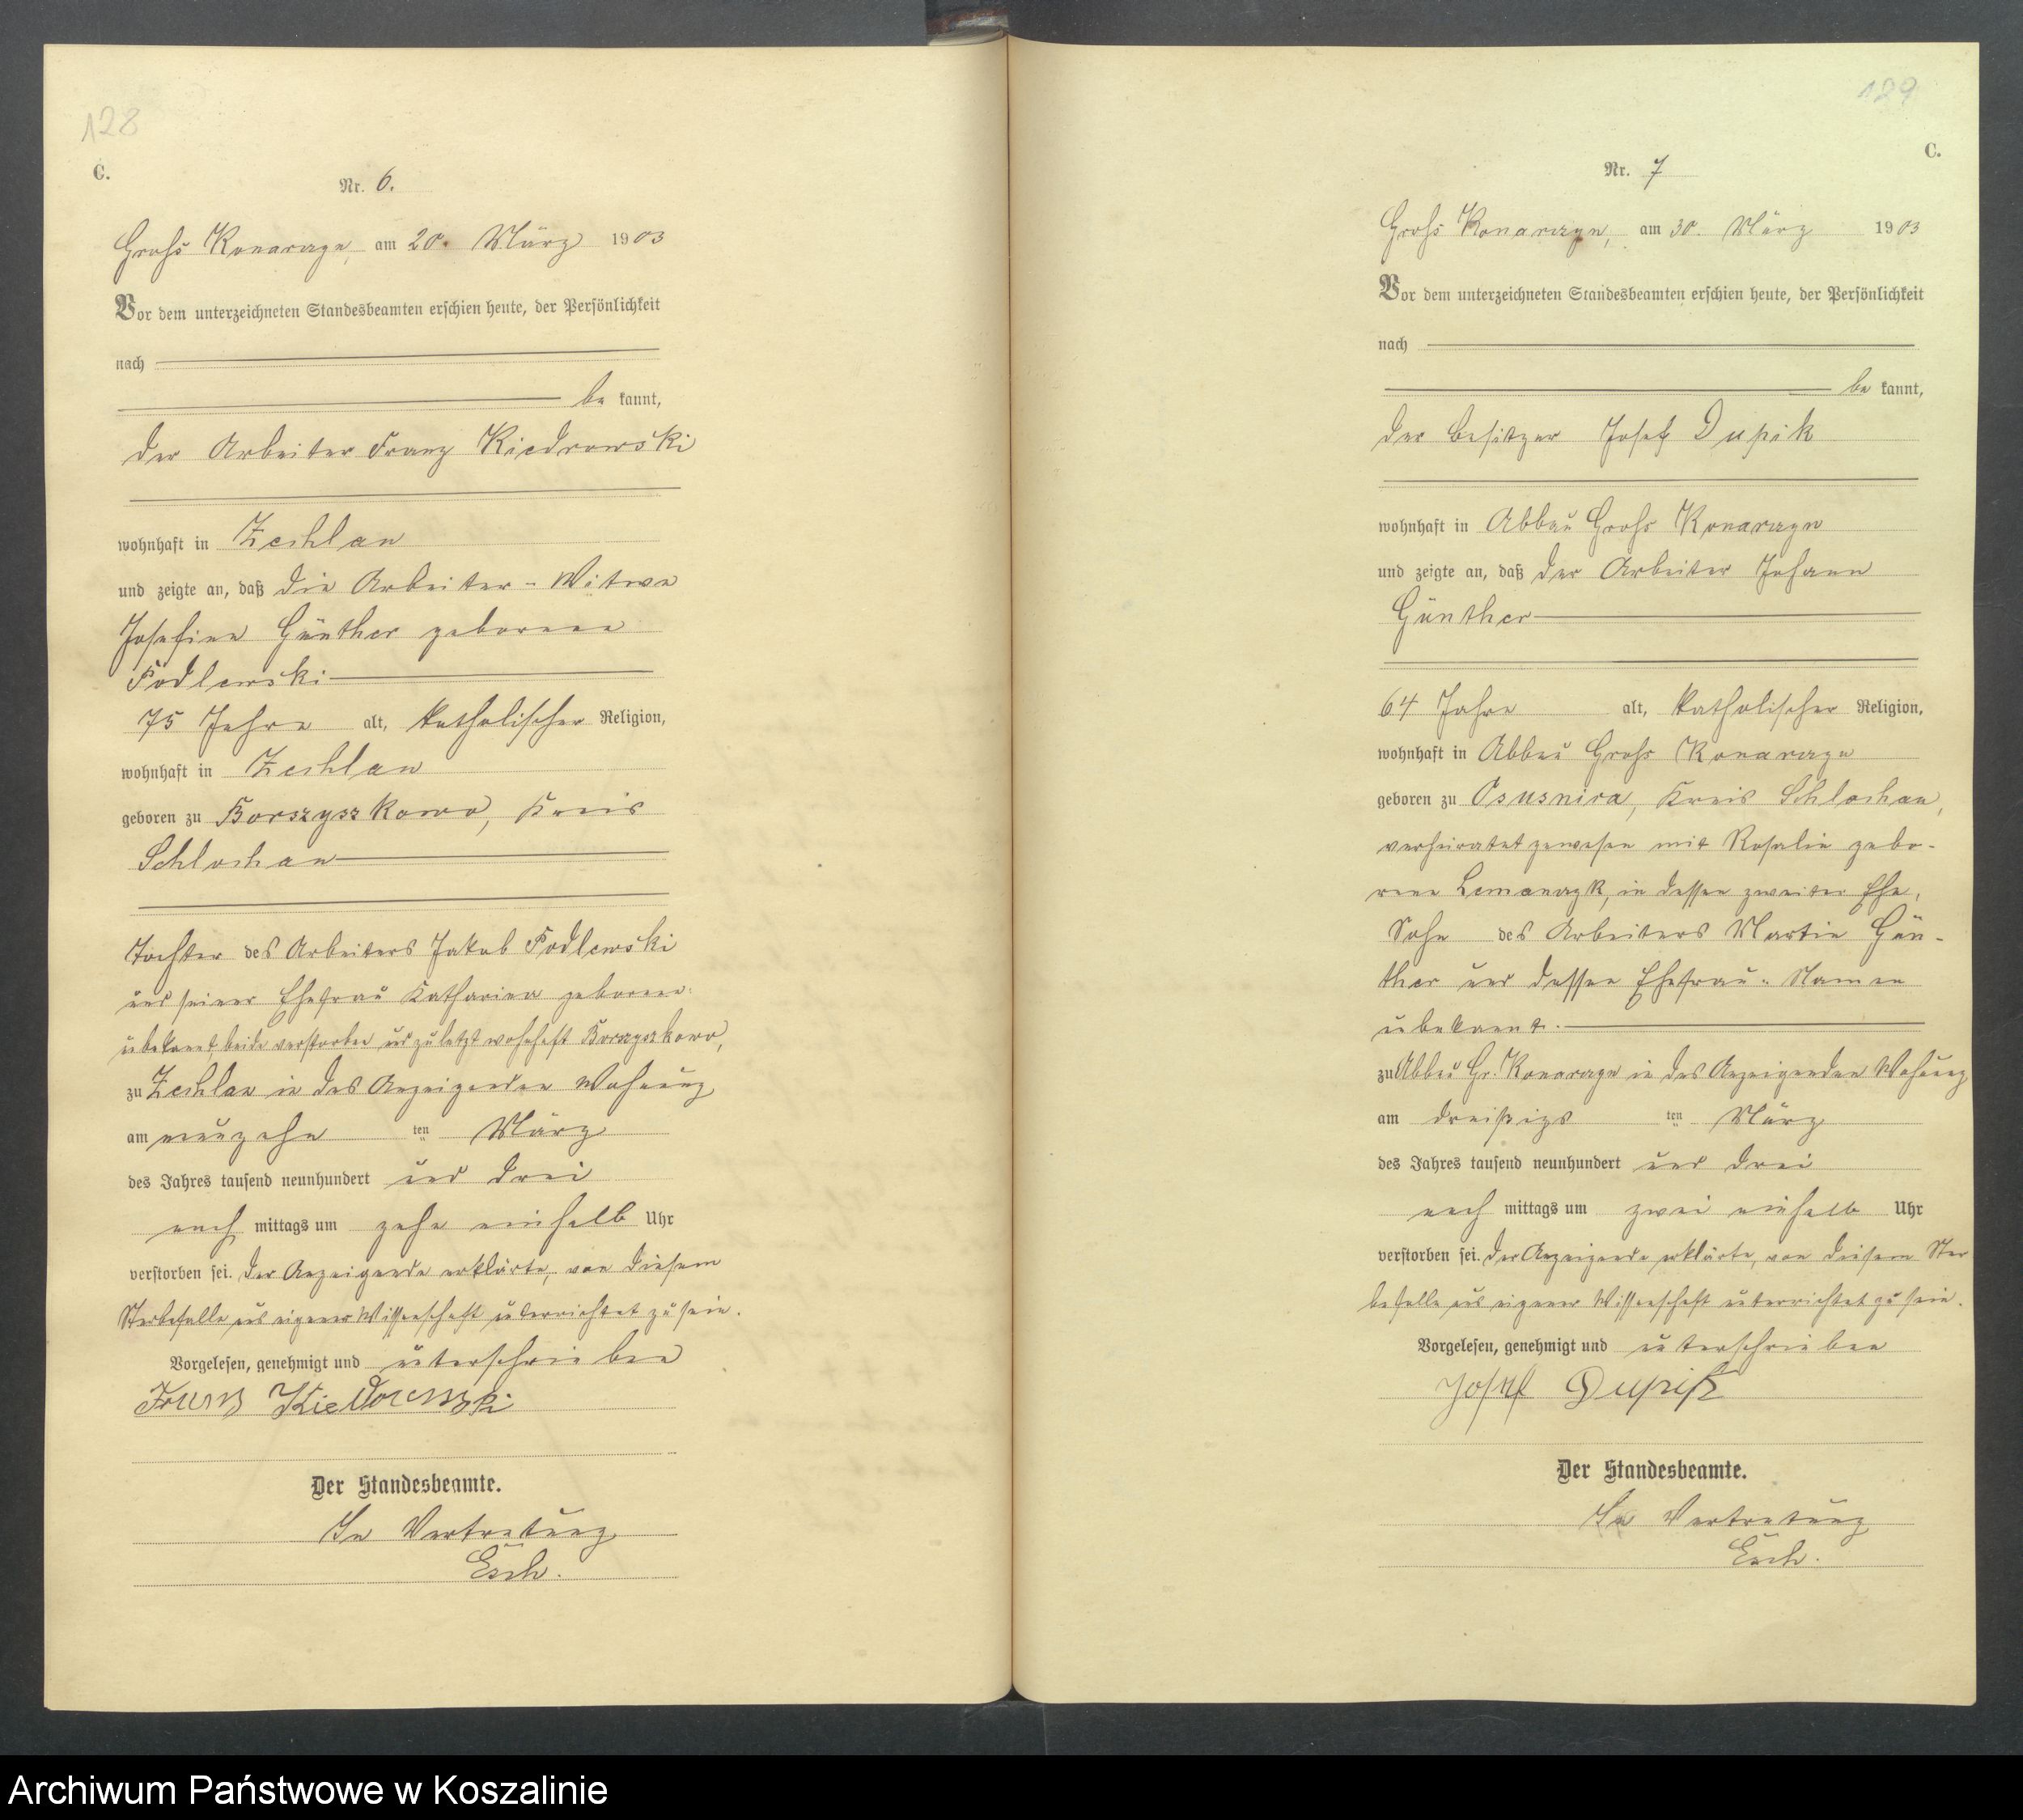 128
C.
Nr. 6.
Groß Konarczyn, am 20. März 1903
Vor dem unterzeichneten Standesbeamten erschien heute, der Persönlichkeit
nach
be kannt,
der Arbeiter Franz Kiedrowski
wohnhaft in Zechlau
und zeigte an, daß die Arbeiter-Witwe
Josefine Günther geborene
Podlewski
75 Jahre alt, katholischer Religion,
wohnhaft in Zechlau
geboren zu Borszyszkowo, Kreis
Schlochau
Tochter des Arbeiters Jakob Podlewski
und seiner Ehefrau Katharina geborene
unbekannt, beide verstorben und zuletzt wohnhaft Borszyszkowo,
zu Zechlau in des Anzeigenden Wohnung
am neunzehn ten März
des Jahres tausend neunhundert und drei
nach mittags um zehn einhalb Uhr
verstorben sei. Der Anzeigende erklärte, von diesem
Sterbefalle aus eigener Wissenschaft unterrichtet zu sein.
Vorgelesen, genehmigt und unterschrieben
Franz Kiedrowski
Der Standesbeamte.
In Vertretung
Esch.
129
C.
Nr. 7
Groß Konarczyn, am 30. März 1903
Vor dem unterzeichneten Standesbeamten erschien heute, der Persönlichkeit
nach
be kannt,
der Besitzer Josef Dupik
wohnhaft in Abbau Groß Konarczyn
und zeigte an, daß der Arbeiter Johann
Günther
64 Jahre alt, katholischer Religion,
wohnhaft in Abbau Groß Konarczyn
geboren zu Ossusnica, Kreis Schlochau,
verheiratet gewesen mit Rosalie gebo-
rene Lemanczyk, in dessen zweiter Ehe,
Sohn des Arbeiters Martin Gün-
ther und dessen Ehefrau, Namen
unbekannt.
zu Abbau Gr. Konarczyn in des Anzeigenden Wohnung
am dreißigs ten März
des Jahres tausend neunhundert und drei
nach mittags um zwei einhalb Uhr
verstorben sei. Der Anzeigende erklärte, von diesem Ster
befalle aus eigener Wissenschaft unterrichtet zu sein.
Vorgelesen, genehmigt und unterschrieben
Josef Dupik
Der Standesbeamte.
In Vertretung
Esch.
Archiwum Państwowe w Koszalinie